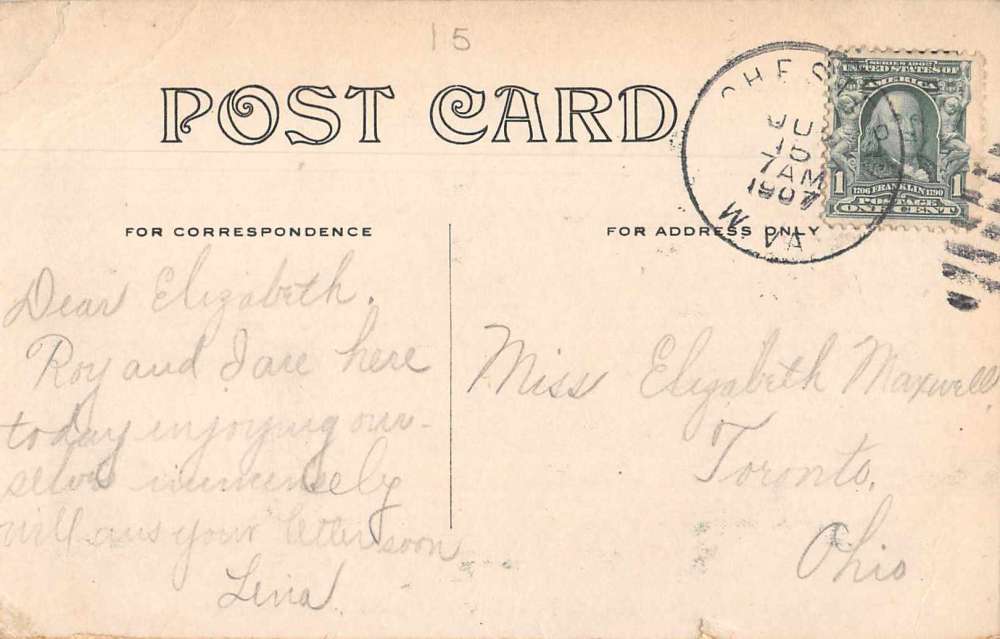 15
POST CARD
CHES
JU
15
7 AM
1907
W. VA
SERIES 1902
UNITED STATES OF
AMERICA
1
1706 FRANKLIN 1790
1
POSTAGE
ONE CENT
FOR CORRESPONDENCE
Dear Elizabeth.
Roy and I are here
today injoying our-
selves immensely
will ans your letter soon
Lena.
FOR ADDRESS ONLY
Miss Elizabeth Maxwell,
Toronto,
Ohio